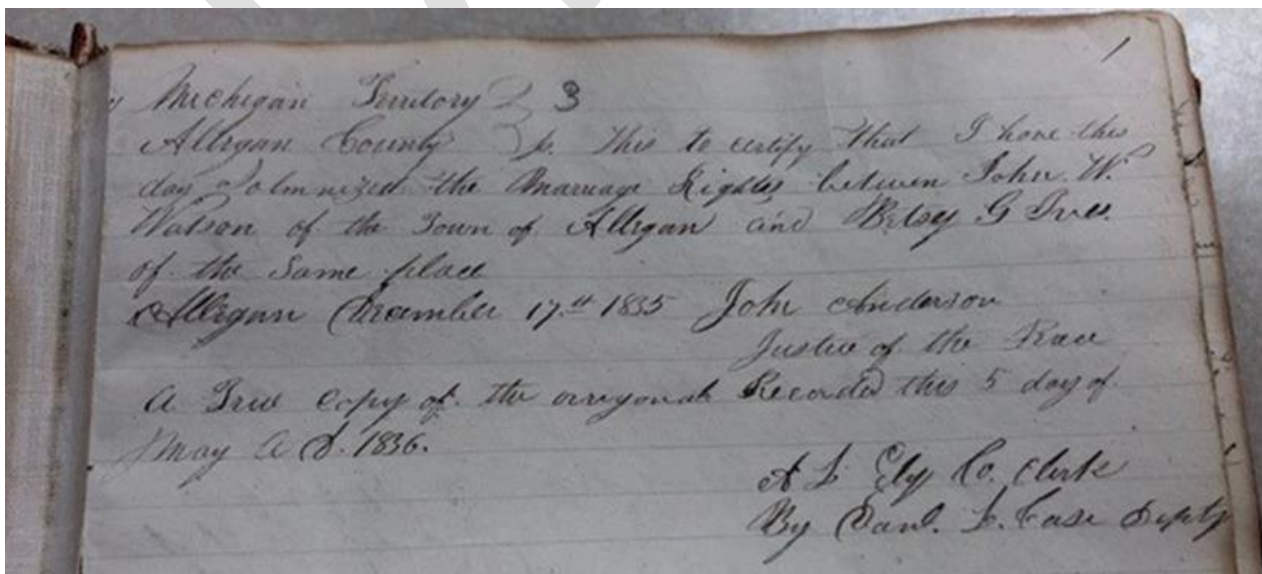 1
Michigan Territory } 3
Allegan County } ss. This to certify that I have this
day Solmnized the Marriage Rights between John W.
Watson of the Town of Allegan and Betsy G Ives
of the Same place
Allegan December 17th 1835 John Anderson
Justice of the Peace
A True copy of the orrygonal Recorded this 5 day of
May A D. 1836.
A L Ely Co. Clerk
By Danl. L. Case Depty